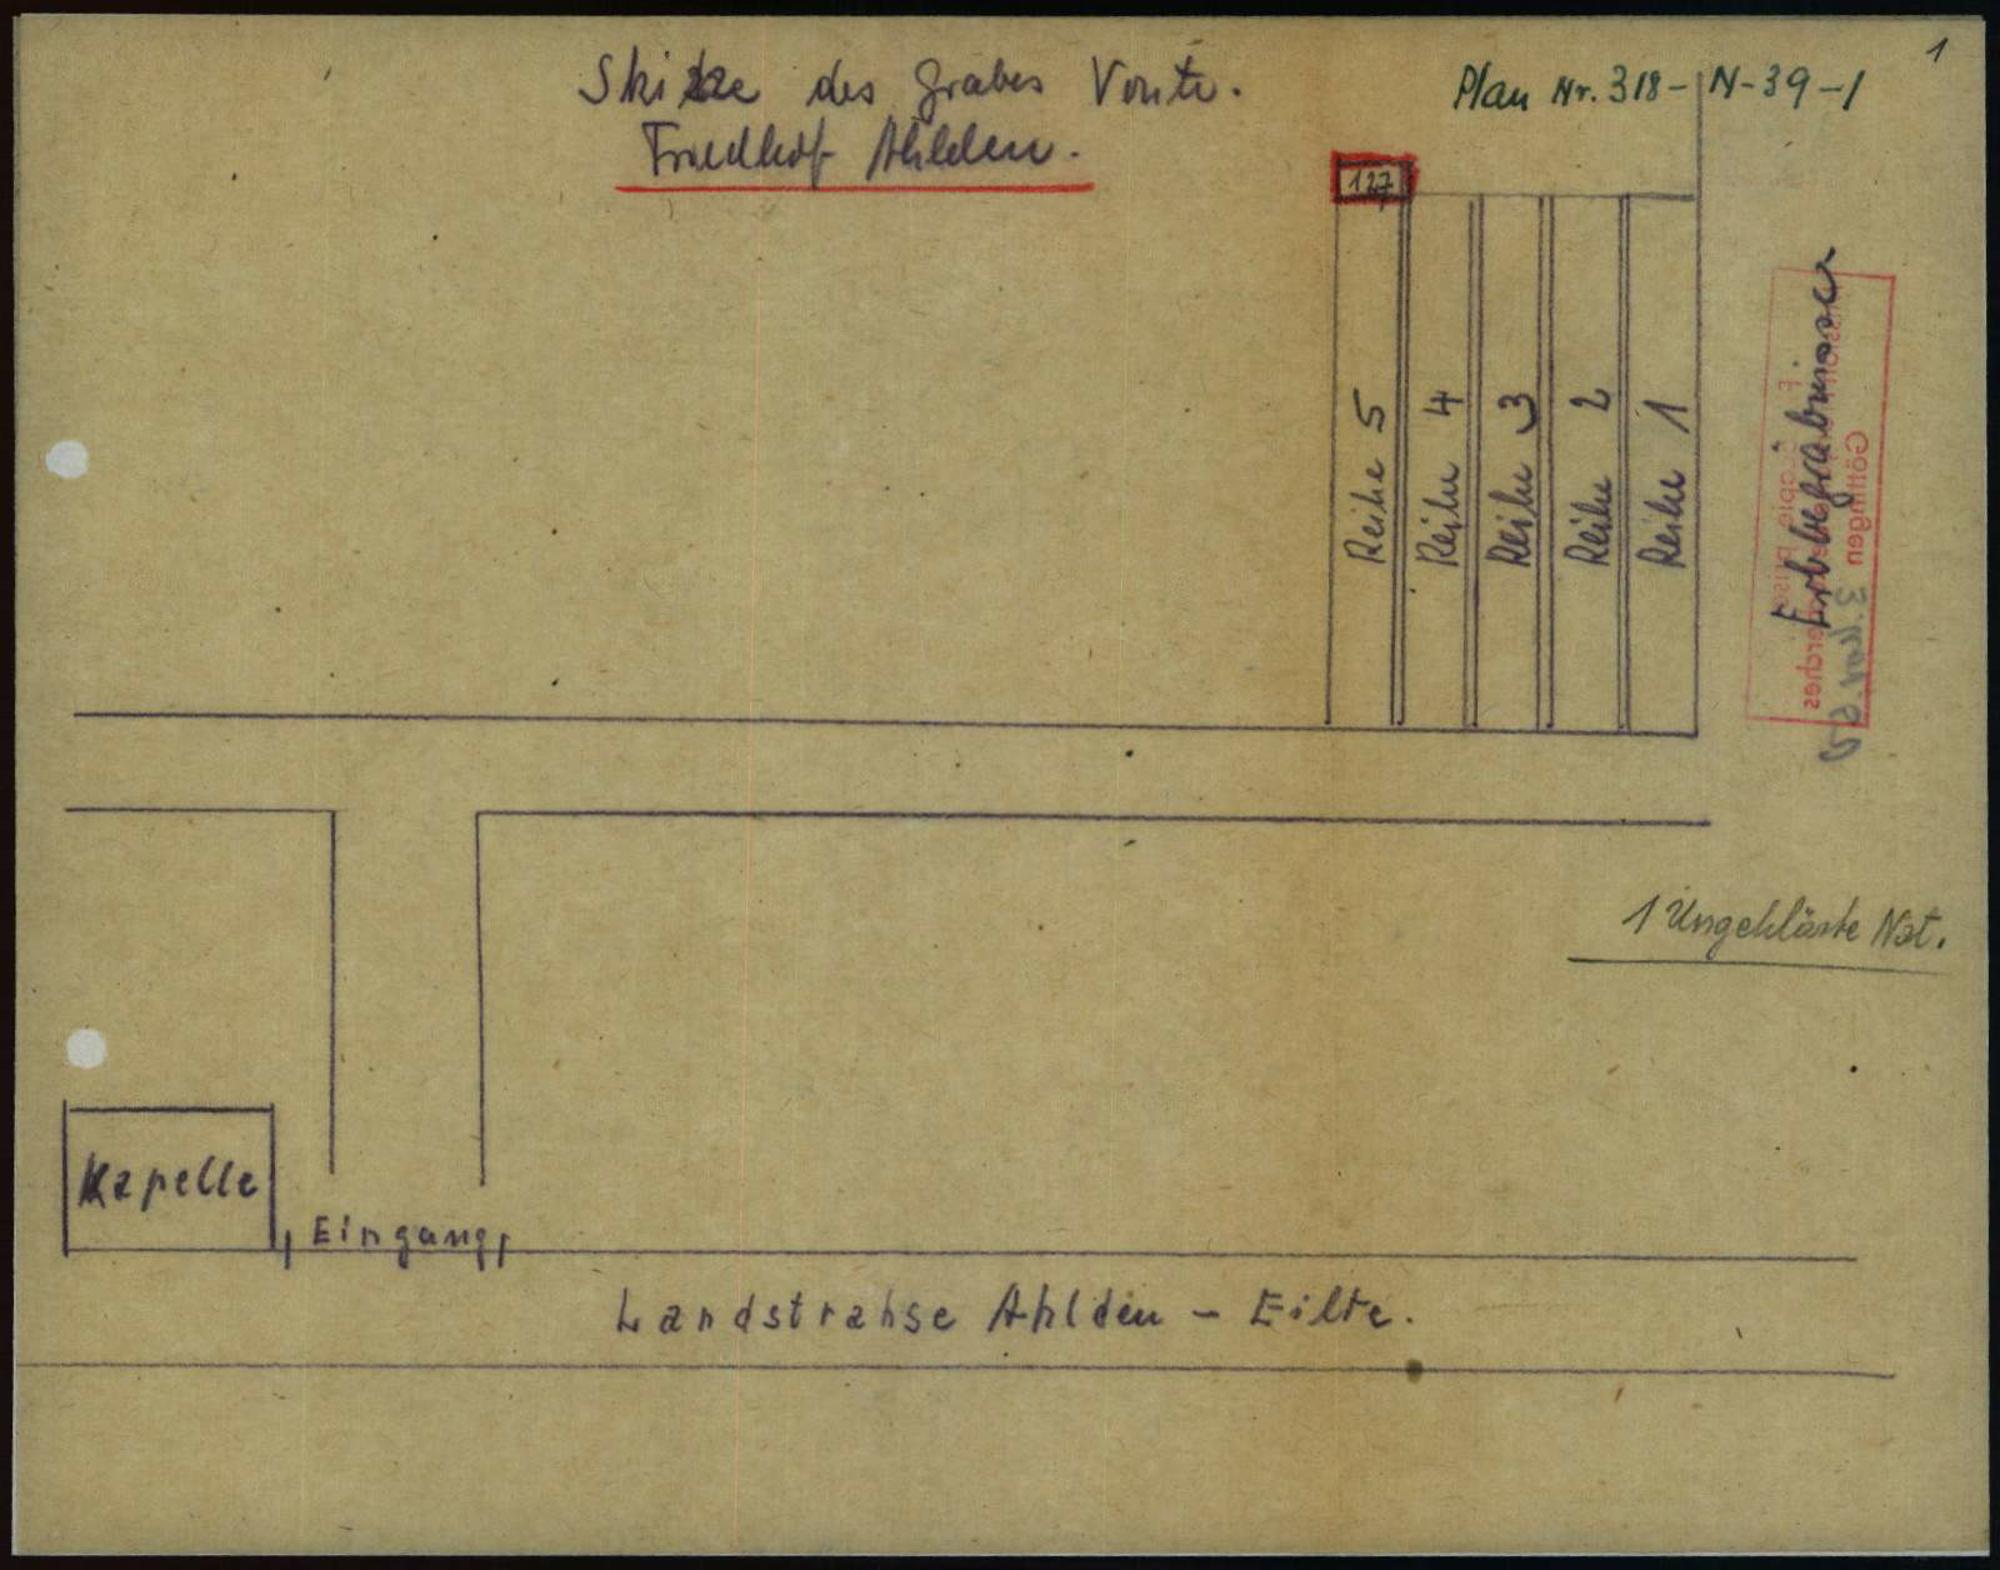 1
Plan Nr. 318- N-39-1
Skizze des Grabes Vonte.
Friedhof Ahlden.
127
Reihe 5
Reihe 4
Reihe 3
Reihe 2
Reihe 1
Erbbegräbnisse
Göttingen
1 Ungeklärte Nat.
Kapelle
Eingang
Landstrahse Ahlden - Eilte.